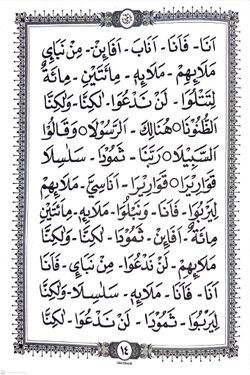 اَنَا۔ فَاَنَا۔ اَنَابَ۔ اَفَا۠ئِنْ۔ مِنْ نَبَاِی
مَلَا۠ئِهِمْ۔ مَلَا۠ئِهٖ۔ مِائَتَيْنِ۔ مِائَةٌ
لِتَتْلُوَا۔ لَنْ نَدْعُوَا۔ لٰكِنَّا۔ وَلٰكِنَّا
الظُّنُوْنَا○ هُنَالِكَ۔ الرَّسُوْلَا○ وَقَالُوْا
السَّبِيْلَا○ رَبَّنَا۔ ثَمُوْدَا۔ سَلٰسِلَا
قَوَارِيْرَا○ قَوَارِيْرَا۔ اَنَاسِیَّ۔ مَلَا۠ئِهِمْ
لِيَرْبُوَا۔ فَاَنَا۔ وَنَبْلُوَا۔ مَلَا۠ئِهٖ۔ مِائَتَيْنِ
مِائَةٌ۔ اَفَا۠ئِنْ۔ ثَمُوْدَا۔ لٰكِنَّا۔ وَلٰكِنَّا
مَلَا۠ئِهِمْ۔ لَنْ نَدْعُوَا۔ مِنْ نَبَاِی۔ فَاَنَا
اَنَا۔ فَاَنَا۔ مَلَا۠ئِهٖ۔ سَلٰسِلَا۔ وَلٰكِنَّا
لِيَرْبُوَا۔ ثَمُوْدَا۔ لَنْ نَدْعُوَا۔ لٰكِنَّا
١٤